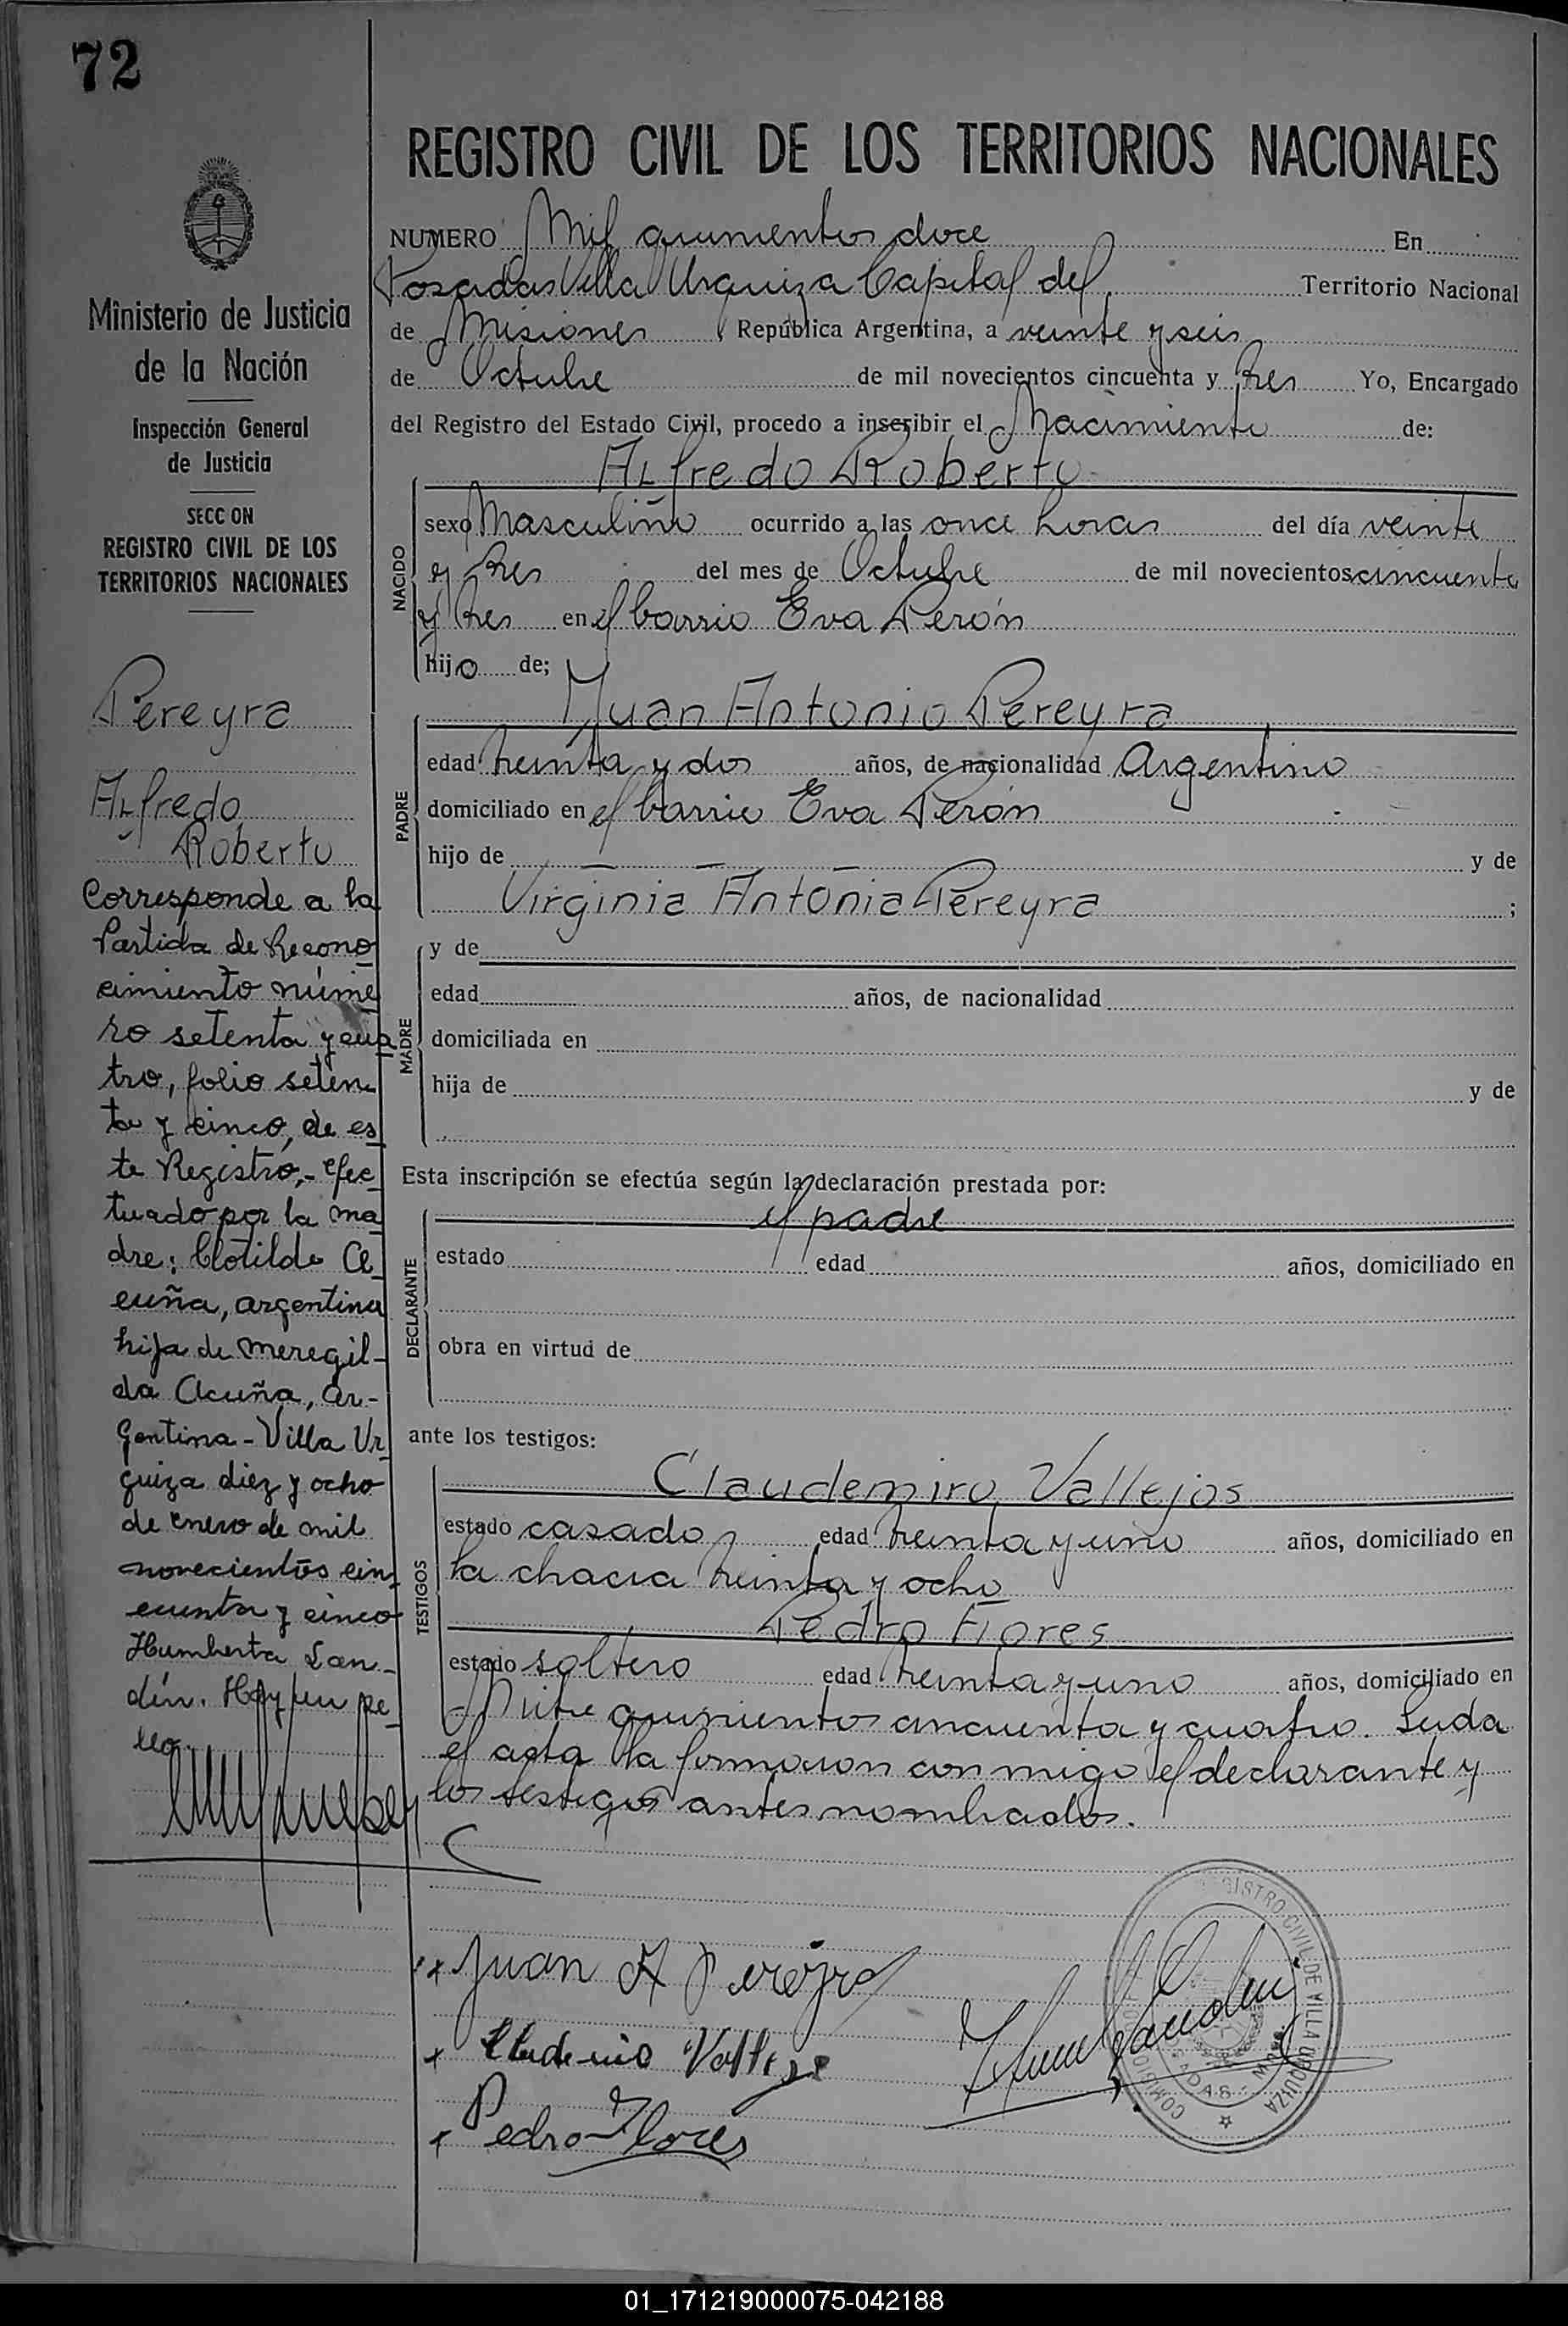 72
REGISTRO CIVIL DE LOS TERRITORIOS NACIONALES
Ministerio de Justicia
de la Nación
Inspección General
de Justicia
SECC ON
REGISTRO CIVIL DE LOS
TERRITORIOS NACIONALES
Pereyra
Alfredo
Roberto
Corresponde a la
Partida de Recono
cimiento núme
ro setenta y cua
tro, folio seten
ta y cinco, de es
te Registro,- efec
tuado por la ma
dre: Clotilde A
cuña, argentina
hija de Meregil-
da Acuña, Ar-
gentina - Villa Ur
quiza diez y ocho
de enero de mil
novecientos cin
cuenta y cinco
Humberta Lan-
din. Hay un se
llo.
NUMERO Mil quinientos doce En
Posadas Villa Urquiza Capital del Territorio Nacional
de Misiones República Argentina, a veinte y seis
de Octubre de mil novecientos cincuenta y tres Yo, Encargado
del Registro del Estado Civil, procedo a inscribir el Nacimiento de:
Alfredo Roberto
NACIDO
sexo Masculino ocurrido a las once horas del día veinte
y tres del mes de Octubre de mil novecientos cincuenta
y tres en el barrio Eva Perón
hijo de;
Juan Antonio Pereyra
PADRE
edad treinta y dos años, de nacionalidad Argentino
domiciliado en el barrio Eva Perón
hijo de — — — y de
Virginia Antonia Pereyra ;
MADRE
y de
edad años, de nacionalidad
domiciliada en
hija de y de
Esta inscripción se efectúa según la declaración prestada por:
el padre
DECLARANTE
estado edad años, domiciliado en
obra en virtud de
ante los testigos:
Claudemiro Vallejos
TESTIGOS
estado casado edad treinta y uno años, domiciliado en
la chacra treinta y ocho
Pedro Flores
estado soltero edad treinta y uno años, domiciliado en
Mitre quinientos cincuenta y cuatro. Leida
el acta la firmaron con migo el declarante y
los testigos antes nombrados.
x Juan A Pereyra
x Vallejo
x Pedro Flores
REGISTRO CIVIL DE VILLA URQUIZA
01_171219000075-042188